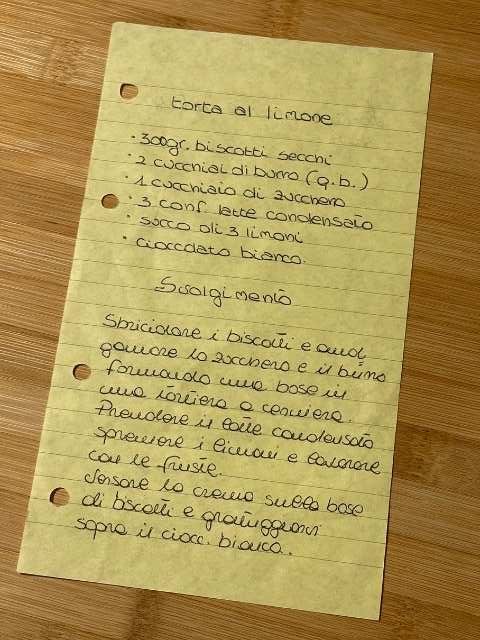 torta al limone
· 300gr. biscotti secchi
· 2 cucchiai di burro (q.b.)
· 1 cucchiaio di zucchero
· 3 conf. latte condensato
· succo di 3 limoni
· cioccolato bianco.
Svolgimento
Sbriciolare i biscotti e amal
gamare lo zucchero e il burro
formando una base in
una tortiera a cerniera.
Prendere il latte condensato
spremere i limoni e lavorare
con le fruste.
Versare la crema sulla base
di biscotti e grattuggiarvi
sopra il ciocc. bianco.